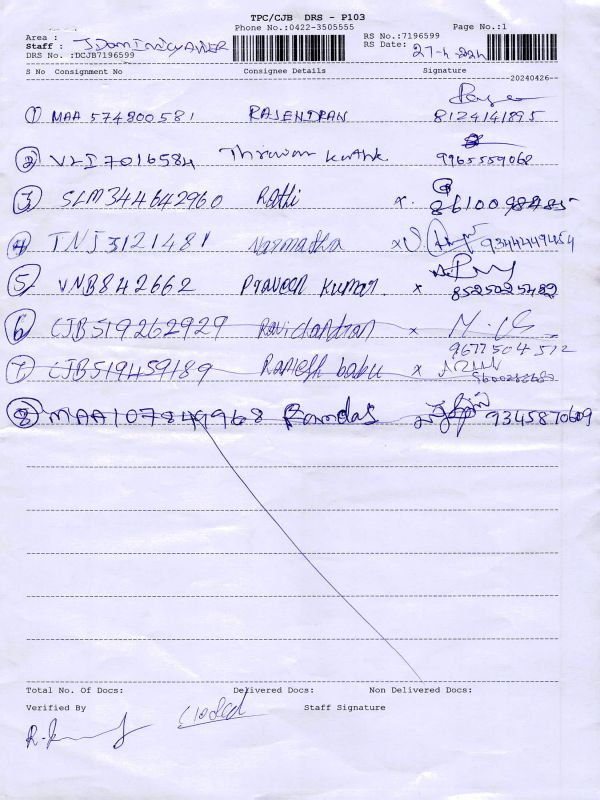 TPC/CJB DRS - P103
Phone No.:0422-3505555 Page No.:1
Area : RS No.:7196599
Staff : J DOMINIC XAVIER RS Date: 27-4-2024
DRS No. :DCJB7196599
S No Consignment No Consignee Details Signature
20240426
1 MAA 574800581 RAJENDRAN 8124141895
2 VLI7016584 Thiruvan Karthik 9965559068
3 SLM344642960 Rathi x.
4 TNJ3121481 Narmadha x 9344449454
5 VNB842662 Praveen Kumar. x 8525025489
6 CJB519262929 Ravichandran x 9677504512
7 CJB519459189 Ramesh babu x
8 MAA107849968 Ramdas 9345870609
Total No. Of Docs: Delivered Docs: Non Delivered Docs:
Verified By closed Staff Signature